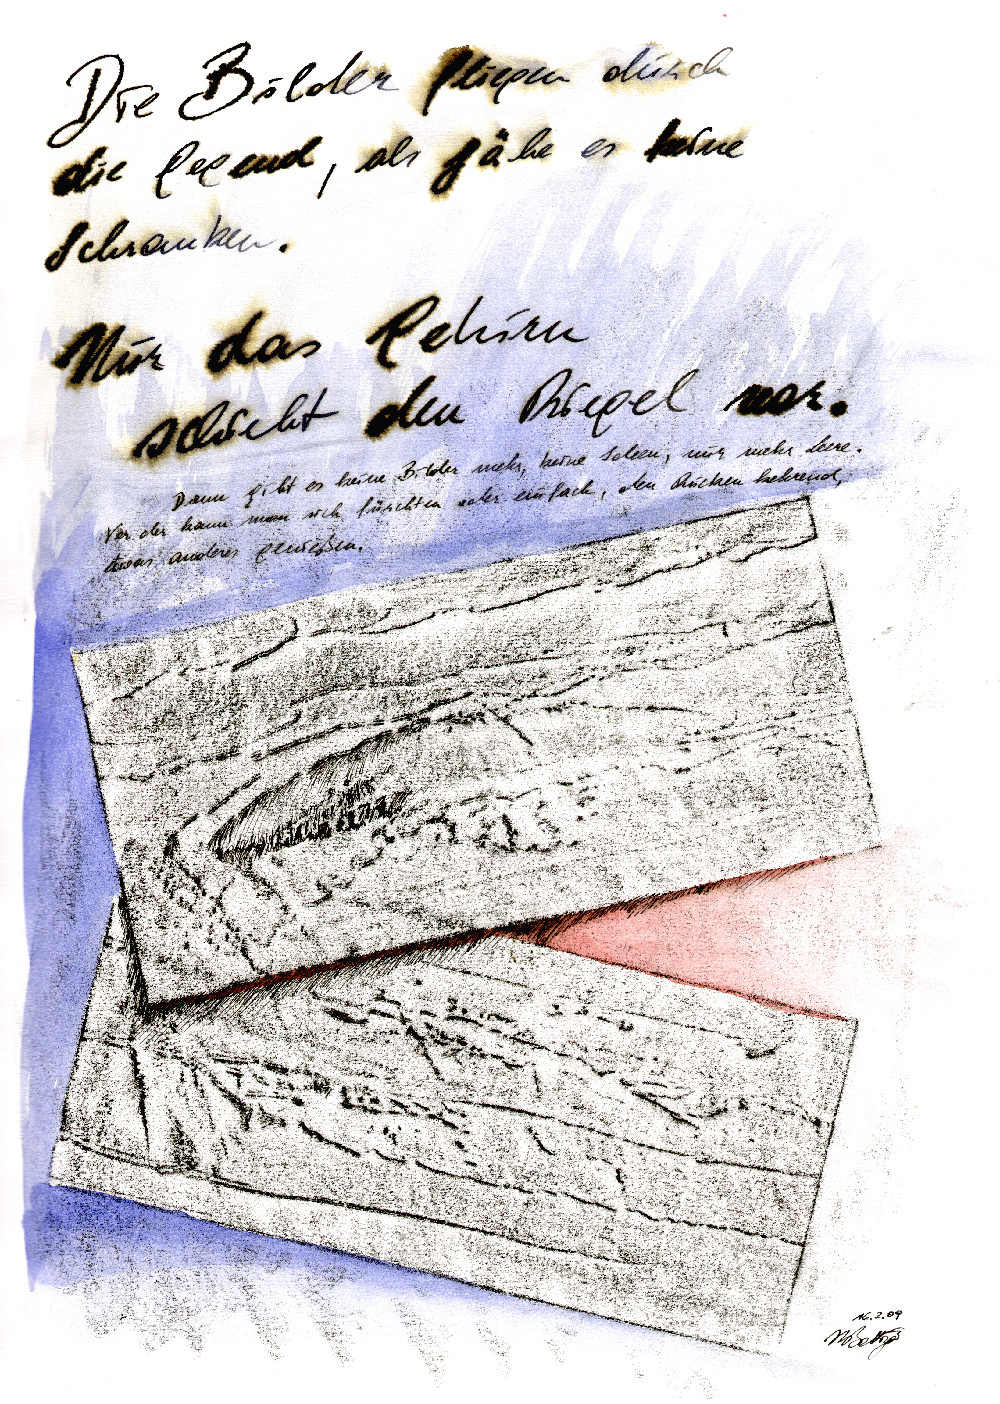 Die Bilder fliegen durch
die Gegend, als gäbe es keine
Schranken.
Nur das Gehirn
schiebt den Riegel vor.
Dann gibt es keine Bilder mehr, keine Ideen, nur mehr Leere.
Vor der kann man sich fürchten oder einfach, den Rücken kehrend,
etwas anderes genießen.
16.2.09